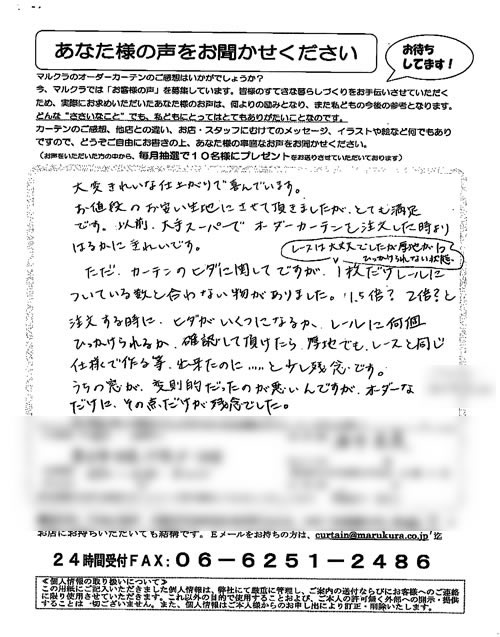 あなた様の声をお聞かせください
お待ち
してます!
マルクラのオーダーカーテンのご感想はいかがでしょうか?
今、マルクラでは「お客様の声」を募集しています。皆様のすてきな暮らしづくりをお手伝いさせていただく
ため、実際にお求めいただいたあなた様のお声は、何よりの励みとなり、また私どもの今後の参考となります。
どんな"ささいなこと"でも、私どもにとってはとてもありがたいことなのです。
カーテンのご感想、他店との違い、お店・スタッフにむけてのメッセージ、イラストや絵など何でもあり
ですので、どうぞご自由にお書きの上、あなた様の率直なお声をお聞かせください。
(お声をいただいた方の中から、毎月抽選で10名様にプレゼントをお送りさせていただいております)
大変きれいな仕上がりで喜んでいます。
お値段のお安い生地にさせて頂きましたが、とても満足
です。以前、大手スーパーでオーダーカーテンを注文した時より
はるかにきれいです。
レースは大丈夫でしたが厚地が1つ
ひっかけられない状態。
ただ、カーテンのヒダに関してですが、1枚だけレールに
ついている数と合わない物がありました。1.5倍?2倍?と
注文する時に、ヒダがいくつになるか、レールに何個
ひっかけられるか、確認して頂けたら、厚地でも、レースと同じ
仕様で作る等、出来たのに……と少し残念です。
うちの窓が、変則的だったのが悪いんですが、オーダーな
だけに、その点だけが残念でした。
お店にお持ちいただいても結構です。Eメールをお持ちの方は、curtain@marukura.co.jp迄
24時間受付FAX:06-6251-2486
≪個人情報の取り扱いについて≫
この用紙にご記入いただきました個人情報は、弊社にて厳重に管理し、ご案内の送付ならびにお客様へのご連絡
に限り使用させていただきます。これ以外の目的で使用することおよび、ご本人の許可無く外部への開示・提供
することは一切ございません。また、個人情報はご本人様からのお申し出により訂正・削除いたします。